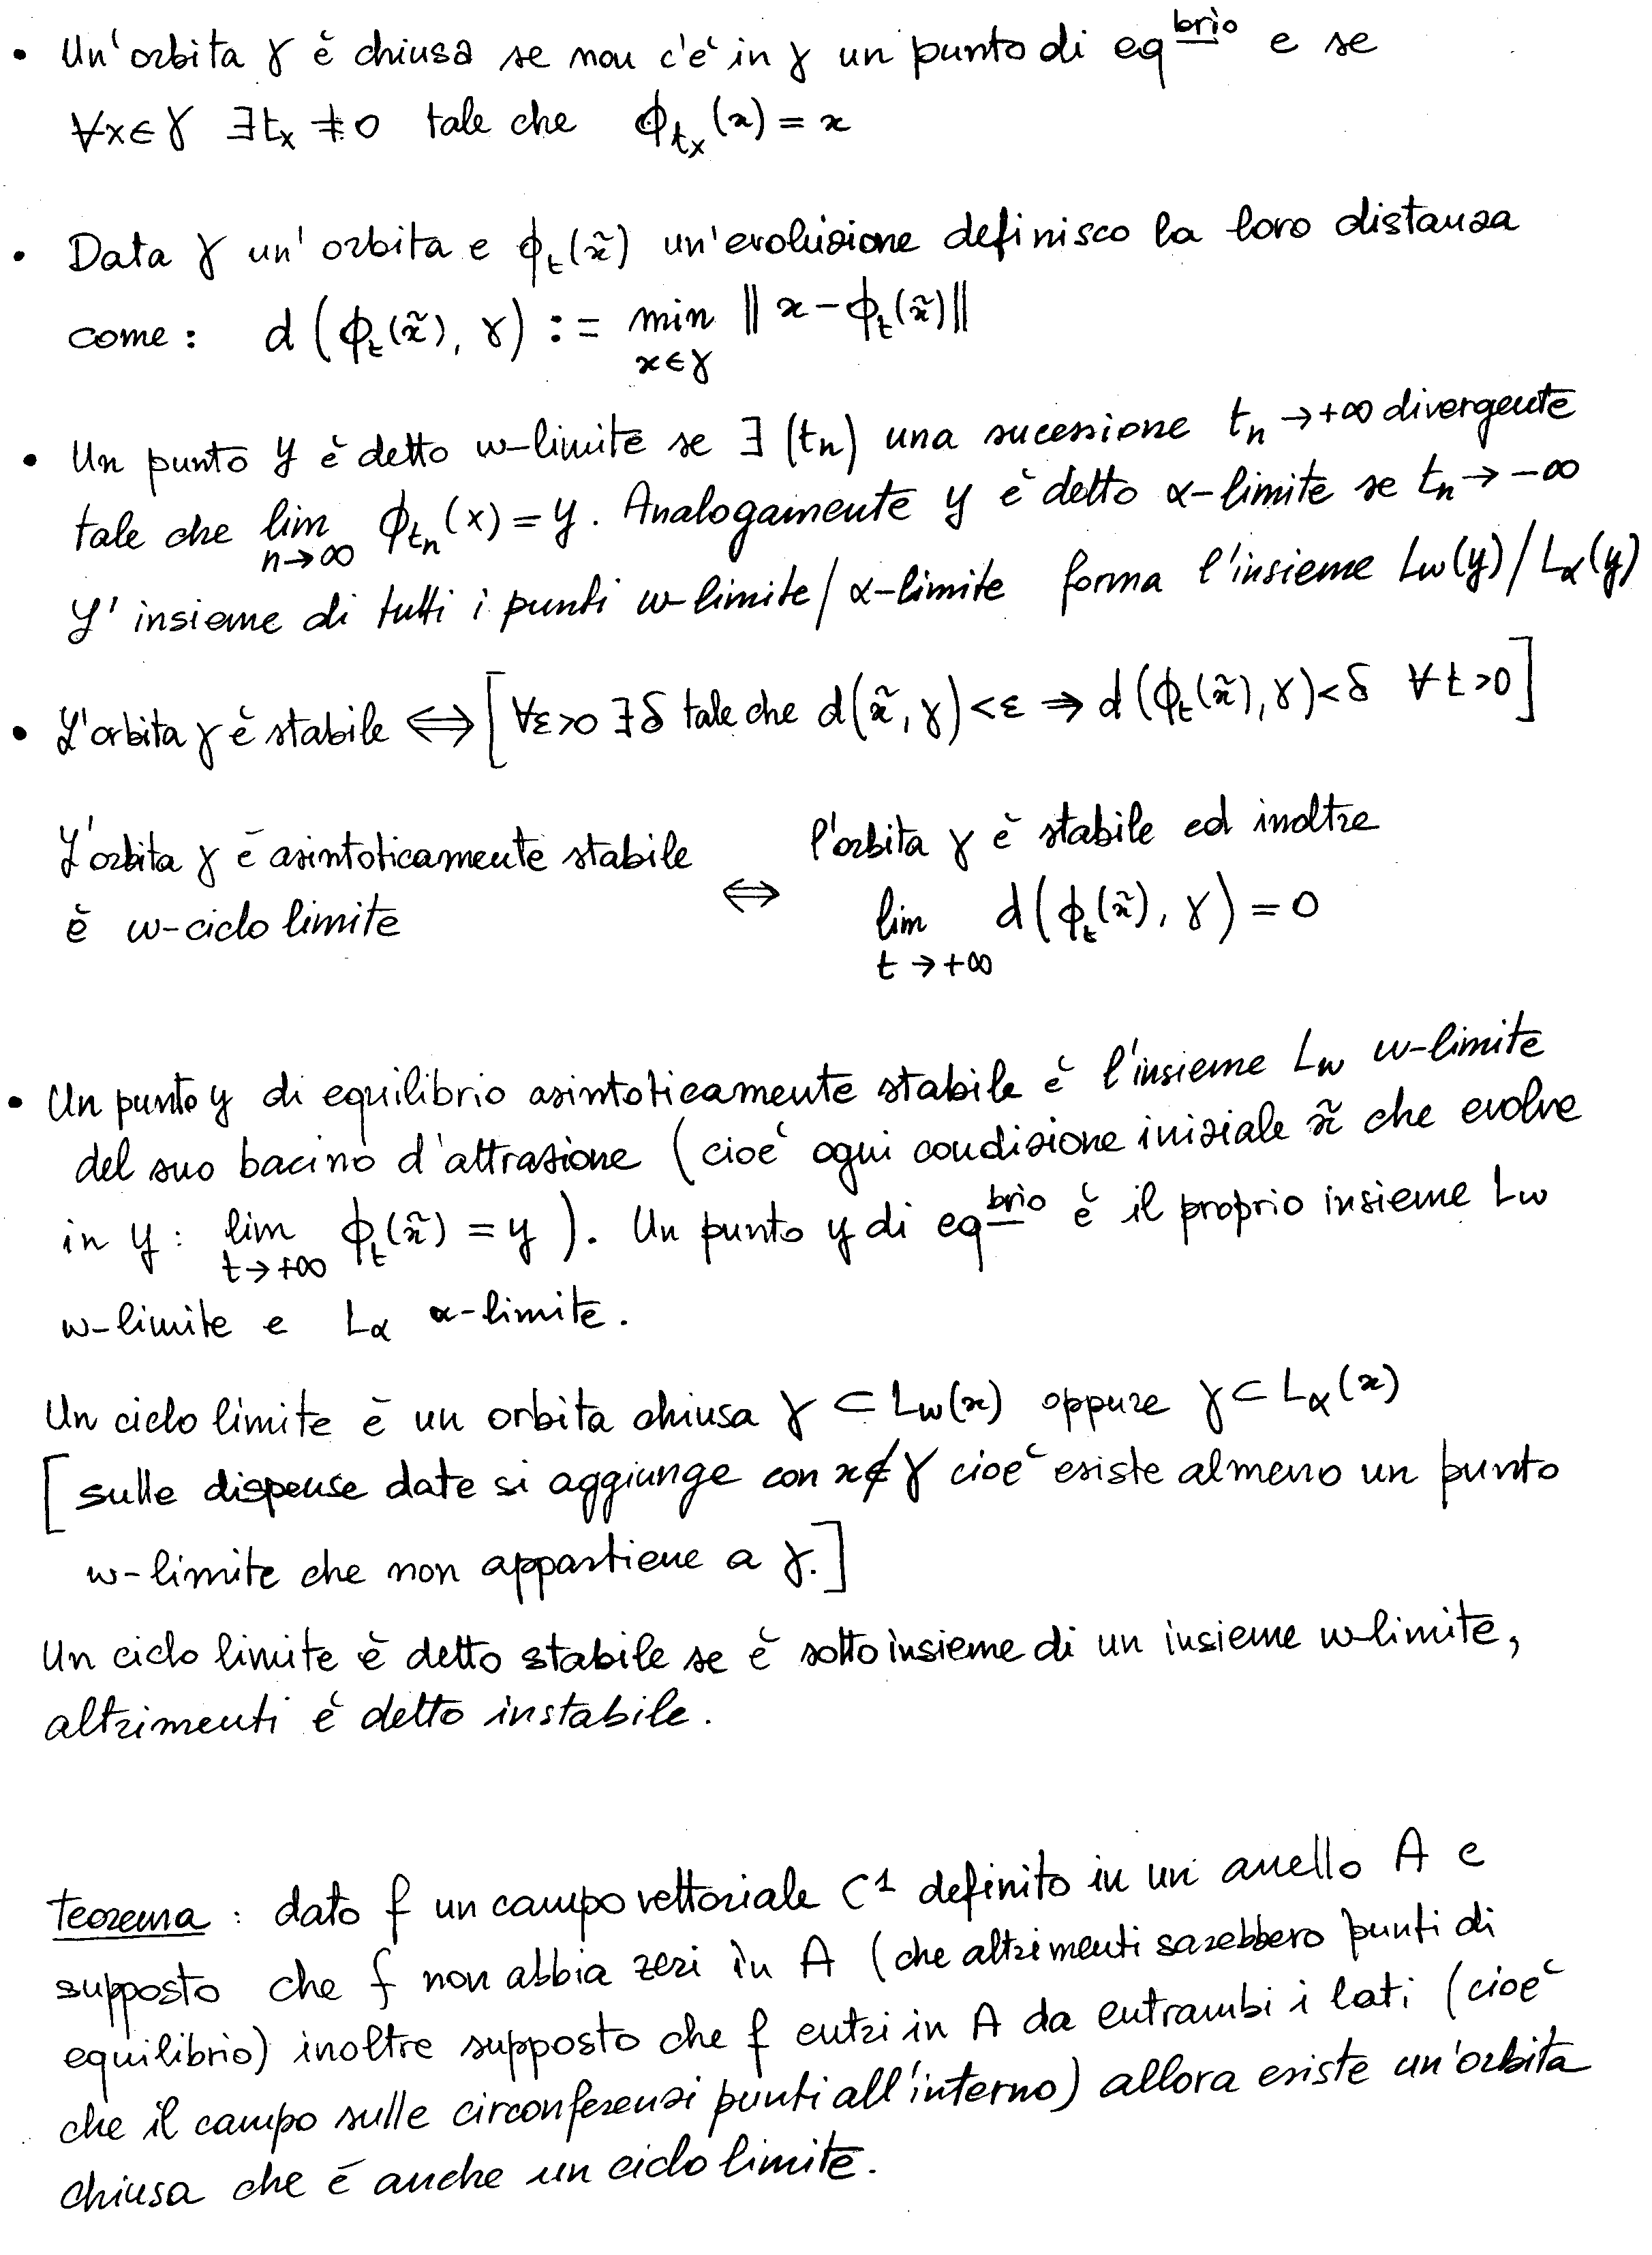 • Un'orbita γ è chiusa se non c'è in γ un punto di eq^brio e se
∀x∈γ ∃t_x ≠0 tale che ϕ_{t_x}(x) = x
• Data γ un'orbita e ϕ_t(x̃) un'evoluzione definisco la loro distanza
come: d(ϕ_t(x̃), γ) := min_{x∈γ} ‖x-ϕ_t(x̃)‖
• Un punto y è detto ω-limite se ∃ (t_n) una sucessione t_n →+∞ divergente
tale che lim_{n→∞} ϕ_{t_n}(x) = y. Analogamente y è detto α-limite se t_n → -∞
L'insieme di tutti i punti ω-limite/α-limite forma l'insieme Lω(y)/Lα(y)
• L'orbita γ è stabile ⟺ [∀ε>0 ∃δ tale che d(x̃, γ)<ε ⇒ d(ϕ_t(x̃), γ)<δ ∀t>0]
L'orbita γ è asintoticamente stabile
è ω-ciclo limite
⟺
l'orbita γ è stabile ed inoltre
lim_{t→+∞} d(ϕ_t(x̃), γ) = 0
• Un punto y di equilibrio asintoticamente stabile è l'insieme Lω ω-limite
del suo bacino d'attrazione (cioè ogni condizione iniziale x̃ che evolve
in y: lim_{t→+∞} ϕ_t(x̃) = y). Un punto y di eq^brio è il proprio insieme Lω
ω-limite e Lα α-limite.
Un ciclo limite è un orbita chiusa γ ⊂ Lω(x) oppure γ ⊂ Lα(x)
[sulle dispense date si aggiunge con x∉γ cioè esiste almeno un punto
ω-limite che non appartiene a γ.]
Un ciclo limite è detto stabile se è sottoinsieme di un insieme ω-limite,
altrimenti è detto instabile.
Teorema: dato f un campo vettoriale C¹ definito in un anello A e
supposto che f non abbia zeri in A (che altrimenti sarebbero punti di
equilibrio) inoltre supposto che f entri in A da entrambi i lati (cioè
che il campo sulle circonferenzi punti all'interno) allora esiste un'orbita
chiusa che è anche un ciclo limite.